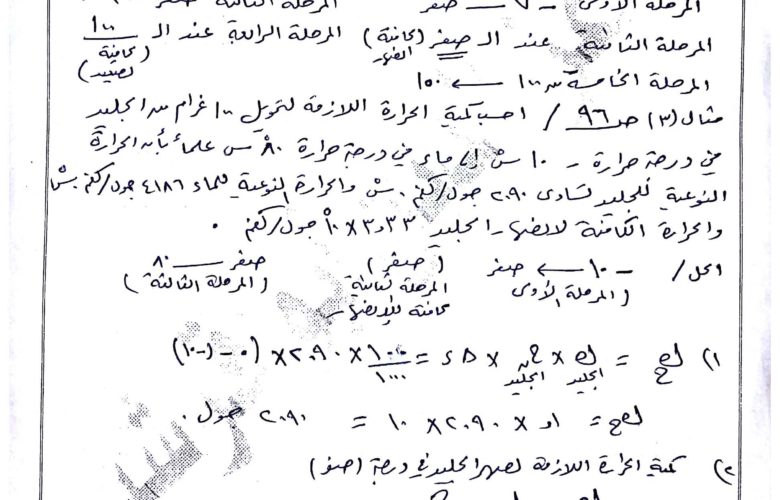 المرحلة الأولى - ٧ ← صفر المرحلة الثالثة صفر
المرحلة الثانية عند الـ صفر (كامنة الصهر) المرحلة الرابعة عند الـ ١٠٠ (كامنة تصعيد)
المرحلة الخامسة من ١٠٠ ← ١٥٠
مثال (٣) ص ٩٦ / احسب كمية الحرارة اللازمة لتحويل ١٠٠ غرام من الجليد
في درجة حرارة - ١٠ س إلى ماء في درجة حرارة ٨٠ س علماً بأن الحرارة
النوعية للجليد تساوى ٢٠٩٠ جول/كغم . س والحرارة النوعية للماء ٤١٨٦ جول/كغم . س
والحرارة الكامنة لانصهار الجليد ٣٫٣٣ × ١٠ جول/كغم .
الحل / - ١٠ ← صفر (صفر) صفر ← ٨٠
(المرحلة الأولى) المرحلة الثانية (المرحلة الثالثة)
كامنة للإنصهار
١) كح = ك الجليد × ح ن الجليد × Δ د = ١٠٠/١٠٠٠ × ٢٠٩٠ × (٠ - (-١٠))
كح = ٠٫١ × ٢٠٩٠ × ١٠ = ٢٠٩٠ جول .
٢) كمية الحرارة اللازمة لصهر الجليد في درجة (صفر)